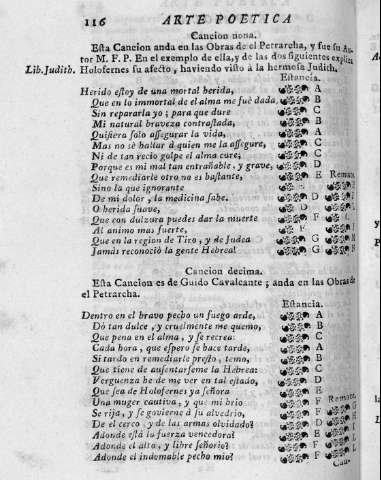 116 ARTE POETICA
Cancion nona.
Esta Cancion anda en las Obras de el Petrarcha, y fue su Au-
tor M. F. P. En el exemplo de ella, y de las dos siguientes explica
Lib. Judith. Holofernes su afecto, haviendo visto à la hermosa Judith.
Estancia.
Herido estoy de una mortal herida, A
Que en lo immortal de el alma me fuè dada, B
Sin repararla yo; para que dure C
Mi natural braveza contrastada, B
Quisiera solo assegurar la vida, A
Mas no sè hallar à quien me la assegure, C
Ni de tan recio golpe el alma cure; C
Porque es mi mal tan entrañable, y grave, D
Que remediarle otro no es bastante, E Remate.
Sino la que ignorante
De mi dolor, la medicina sabe. D
O herida suave, D
Que con dulzura puedes dar la muerte F
Al animo mas fuerte, F
Que en la region de Tiro, y de Judea G
Jamàs reconociò la gente Hebrea! G
Cancion decima.
Esta Cancion es de Guido Cavalcante; anda en las Obras de
el Petrarcha.
Estancia.
Dentro en el bravo pecho un fuego arde, A
Dò tan dulce, y cruelmente me quemo, B
Que pena en el alma, y se recrea: C
Cada hora, que espero se hace tarde, A
Si tardo en remediarle presto, temo, B
Que tiene de ausentarseme la Hebrea: C
Verguenza he de me ver en tal estado, D
Que sea de Holofernes ya señora E
Una muger cautiva, y que mi brio F Remate.
Se rija, y se govierne à su alvedrio, F
De el cerco, y de las armas olvidado? D
Adonde està la fuerza vencedora? E
Adonde el alto, y libre señorìo? F
Adonde el indomable pecho mio? F
Can-